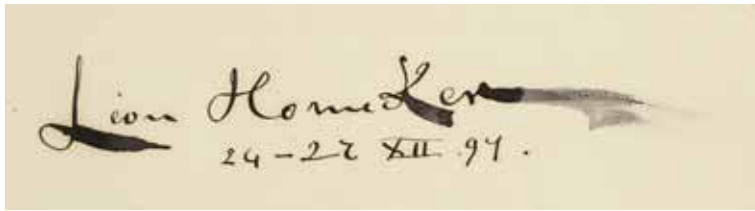 Léon HorneKer
24-27 XII 97.